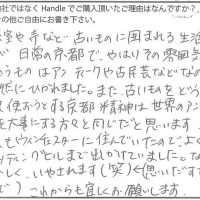 社ではなく Handle でご購入頂いた理由はなんですか?
の他ご自由にお書き下さい。
や寺など、古いものに囲まれる生活
が日常の京都で、やはりその雰囲気
うものはアンティークや古民芸などなの
然にひかれました。また、古いものをどう
使おうとする京都精神は世界のアン
を大事にする方々と同じだと思います
もウィンチェスターに住んでいたのでよく
ティングとしまで出かけていました。な
しく、いやされます(笑)く思いだす
で) これからも宜しくお願いします。